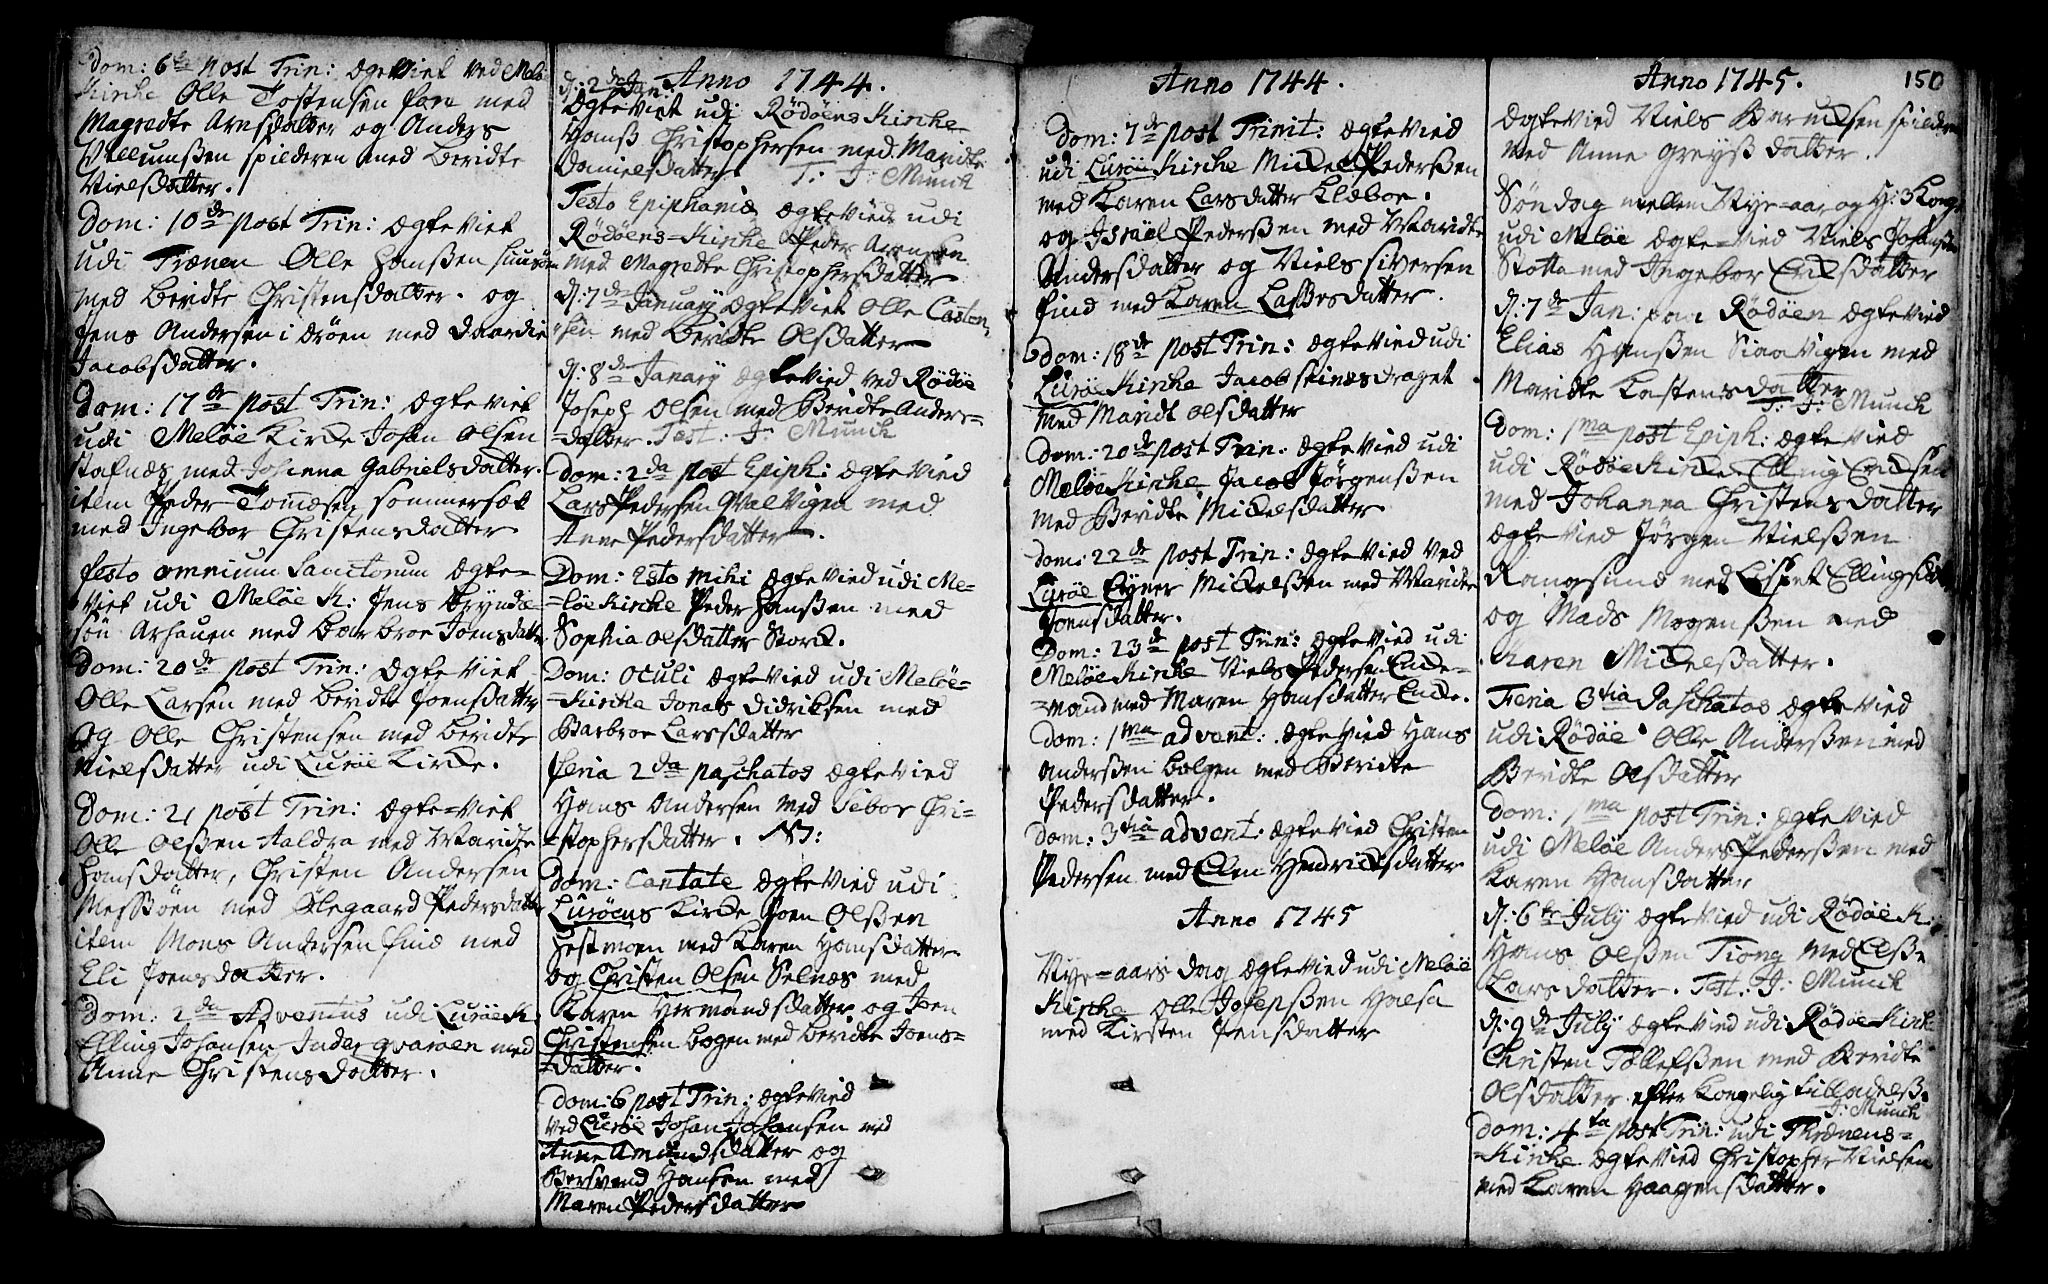 Dom: 6te post Trin: ægteviet ved Melö
Kirche Olle Tostensen fore med
Magredte Arnsdatter og Anders
Villumsßen spilderen med Beridte
Nielsdatter.
Dom: 10de post Trin: Ægteviet
udi Trænen Olle Hanßen
med Beridte Christensdatter. og
Jens Andersen i Øröen med Daardie
Jacobsdatter.
Dom: 17de post Trin: Ægteviet
udi Melöe Kircke Johan Olsen
stafnæs med Johanna Gabrielsdatter.
item Peder Tomæsen sommersæt
med Ingebor Christensdatter
festo omnium Sanctorum Ægte-
viet udi Melöe K: Jens Bryndæ-
sön Arhauen med Barbroe Joensdatter
Dom: 20de post Trin: Ægteviet
Olle Larsen med Beridte Joensdatter
Og Olle Christensen med Beridte
Nielsdatter udi Luröe Kircke.
Dom: 21 post Trin: Ægte-viet
Olle Olsßen Aaldra med Maridte
Hansdatter, Christen Andersen
Messöen med Ølegaard Pedersdatter
item Mons Andersen find med
Eli Joensdatter.
Dom: 2da Adventus udi Luröe K:
Elling Johansen Inder qvaröen med
Anne Christensdatter.
Anno 1744.
d: 2de Jan:
Ægteviet udi Rödöens Kirche
Hanß Christophersen med Maridte
Danielsdatter. T: J: Munck
Festo Epiphaniæ Ægtevied udi
Rödöens=Kirche Peder Arensen
med Magredte Christophersdatter
d: 7de January Ægteviet Olle Casten,
sen med Beridte Olsdatter
d: 8de Janary Ægtevied ved Rödöe
Joseph Olsen med Beridte Anders=
=datter. Test. J: Munck
Dom: 2da post Epiph: Ægtevied
Lars Pedersen Qvalvigen med
Anne Pedersdatter
Dom: Esto mihi Ægtevied udi Me-
=löe Kirche Peder Hanßen med
Sophia Olsdatter Storck.
Dom: Oculi Ægtevied udi Melöe=
=Kirche Jonas Didriksen med
Barbroe Larssdatter
Feria 2da paschatos Ægtevied
Hans Andersen med Sebor Chri-
stophersdatter. NB:
Dom: Cantate Ægtevied udi
Luröens Kircke Joen Olsßen
Hestmoen med Karen Hansdatter
og Christen Olsen Selnæs med
Karen Hermandsdatter og Joen
Christensen bogen med Beridte Joens=
=datter.
Dom: 6 post Trin: Ægtevied
ved Luröe Johan Johansen med
Anne Amundsdatter og
Bersvend Hansen med
Maren Pedersdatter
Anno 1744.
Dom: 7de post Trinit: Ægtevied
udi Luröe Kirche Mickel Pederßen
med Karen Larsdatter Klæboe.
og Israel Pederßen med Maridte
Andersdatter og Niels Siversen
find med Karen Laßesdatter.
Dom: 18de post Trin: Ægtevied udi
Luröe Kirche Jacob skinesdraget
med Maridt Olsdatter
Dom: 20de post Trin: Ægtevied udi
Melöe Kirche Jacob Jörgenßen
med Beridte Mickelsdatter
Dom: 22de post Trin: Ægtevied ved
Luröe Ejner Mickelßen med Maridte
Joensdatter.
Dom: 23de post Trin: Ægtevied udi
Melöe Kirche Niels Pedersen Ende-
=mand med Maren Hansdatter Ende.
Dom: 1ma advent: Ægtevied Hans
Anderßen bolgen med Beridte
Pedersdatter.
Dom: 3tia advent: Ægtevied Christen
Pedersen med Elen Hendrichsdatter
Anno 1745
Nye=aars dag Ægtevied udi Melöe
Kirche Olle Josepßen Halsa
med Kirsten Jensdatter
Anno 1745. 150
Ægtevied Niels spilderen
med Anne Greyß datter.
Söndag mellem Nye=aar og H: 3 Kong.
udi Melöe Ægte=vied Niels Johansen
Stotta med Ingebor Ericksdatter
d: 7de Jan: paa Rödöen Ægtevied
Elias Hanßen Siaavigen med
Maridte Kastensdatter
T: J: Munck
Dom: 1ma post Epiph: Ægtevied
udi Rödöe Kircke Elling Ericksen
med Johanna Christensdatter
Ægtevied Jörgen Nielßen
Rangsund med Lispet Ellingsdatter
og Mads Mogenßen med
Karen Mickelsdatter.
Feria 3tia Paschatos Ægtevied
udi Rödöe Olle Anderßen med
Beridte Olsdatter
Dom: 1ma post Trin: Ægtevied
udi Melöe Anders Pederßen med
Karen Hansdatter
d: 6te July Ægtevied udi Rödöe K:
Hans Olsßen Tiong med Elsße
Larsdatter. Test. J: Munck
d: 9de July Ægtevied udi Rödöe Kirk
Christen Tollefsßen med Beridte
Olsdatter efter Kongelig tilladelsße
J: Munck
Dom: 4ta post Trin: udi Thrænens=
=Kirche Ægtevied Christopher Nielsen
med Karen Haagensdatter.